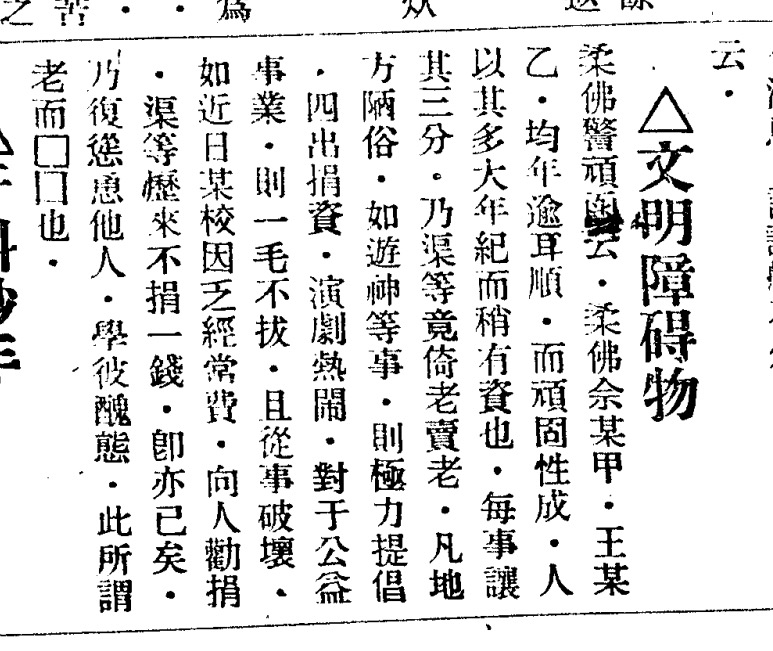 云．
△文明障碍物
柔佛警頑函云．柔佛佘某甲．王某
乙．均年逾耳順．而頑固性成．人
以其多大年紀而稍有資也．每事讓
其三分。乃渠等竟倚老賣老．凡地
方陋俗．如遊神等事．則極力提倡
．四出捐資．演劇熱鬧．對于公益
事業．則一毛不拔．且從事破壞．
如近日某校因乏經常費．向人勸捐
．渠等歷來不捐一錢．卽亦已矣．
乃復慫恿他人．學彼醜態．此所謂
老而□□也．